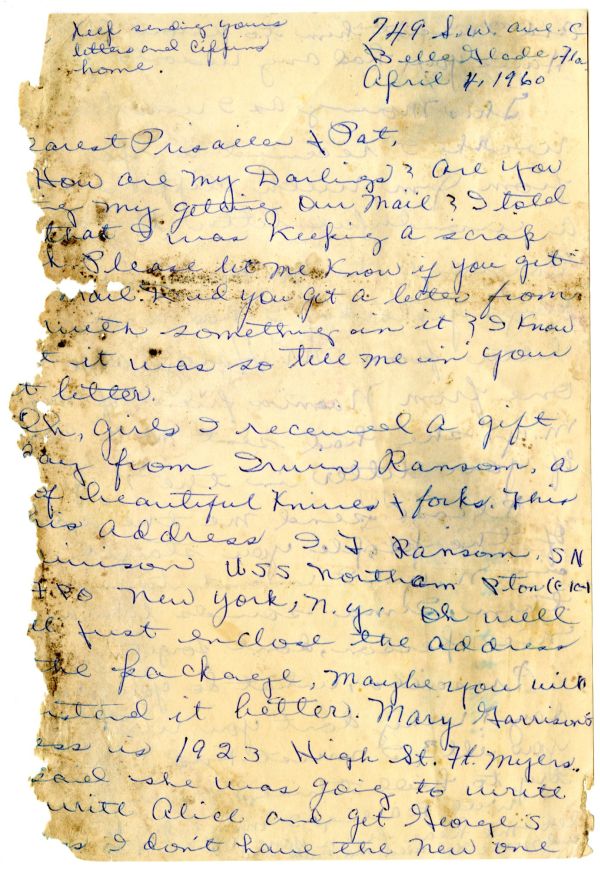 Keep sending yours
letters and
home.
749 S.W. ave. C
Belle Glade, Fla.
April 4, 1960
earest Priscilla & Pat,
How are my Darlings? are you
my getting our mail? I told
that I was keeping a scrap
Please let me know if you get
mail. you get a letter from
with something in it? I know
t it was so tell me in your
t letter.
Oh, girls I received a gift
day from Irwin Ransom, a
of beautiful knives & forks. This
is address I. F. Ransom. SN
USS Northam pton (
FPO New York, N.Y. Oh well
ll just enclose the address
the package, maybe you will
rstand it better. Mary Garrison's
ess is 1923 High St. Ft. Myers.
said she was going to write
write Alice and get George's
s I don't have the new one